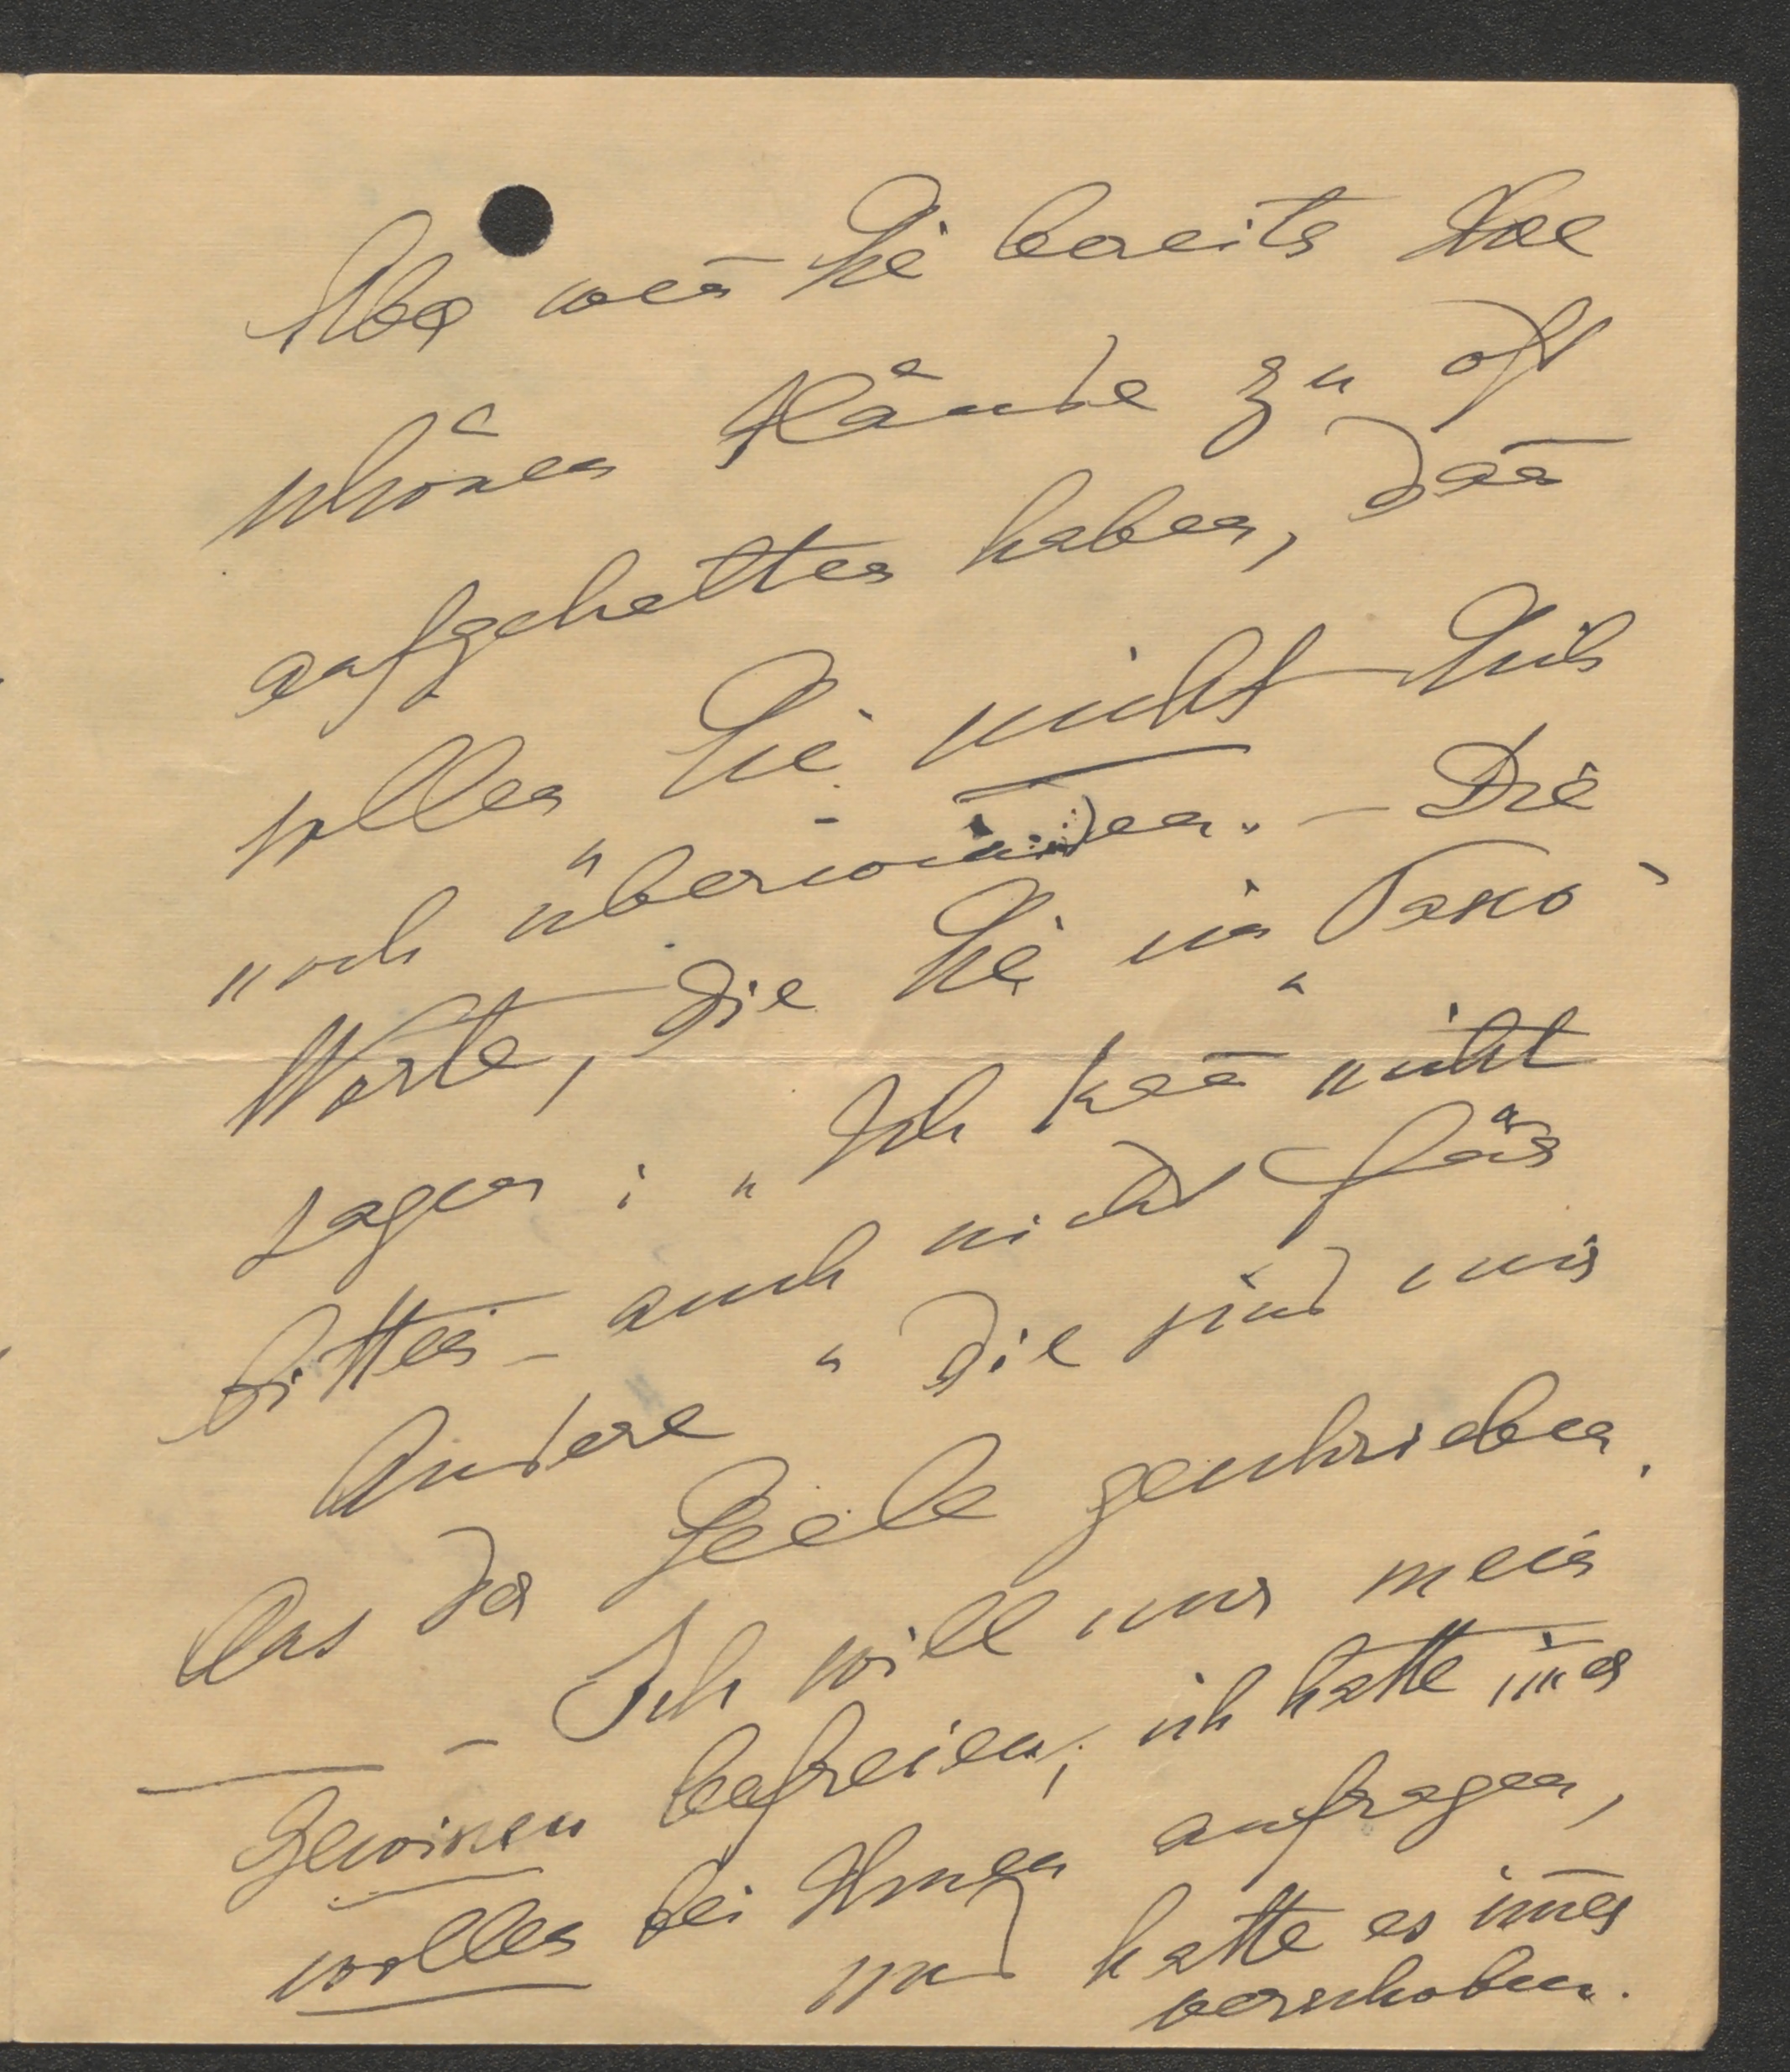 Aber weñ Sie bereits Ihre
schönen Hände zu oft
aufgehalten haben, dañ
sollen Sie nicht sich
noch "überwinden". – Die
Worte, die Sie in "Tasso"
sagen: "Ich kañ nicht
bitten – auch nicht für
Andere" die sind mir
aus der Seele geschrieben.
– Ich will nur mein
Gewissen befreien; ich hatte im̄er
wollen bei Ihnen anfragen,
und hatte es im̄er
verschoben.